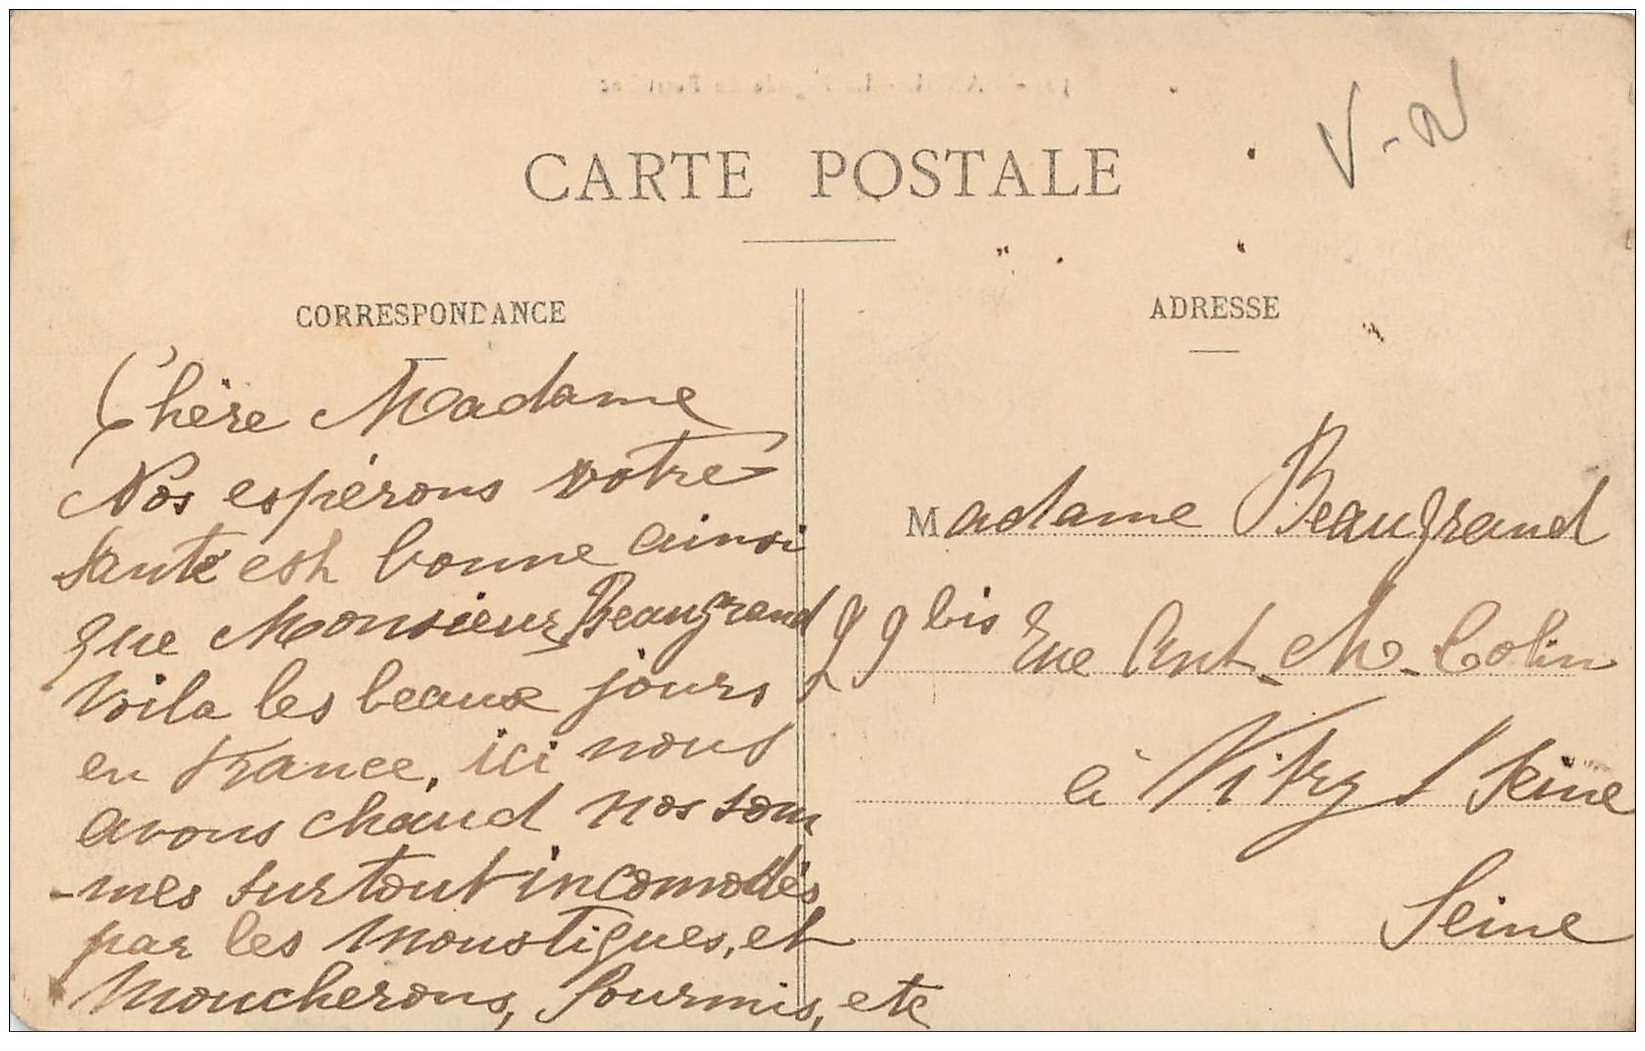 CARTE POSTALE
V-N
CORRESPONDANCE
Chère Madame
Nos espérons votre
Santé est bonne ainsi
que Monsieur Beaugrand
Voila les beaux jours
en France, ici nous
avons chaud nos som
-mes surtout incomodés
par les moustiques, et
Moucherons, fourmis, etc
ADRESSE
Madame Beaugrand
99 bis Rue Ant. Me. Colin
à Vitry s/ Seine
Seine